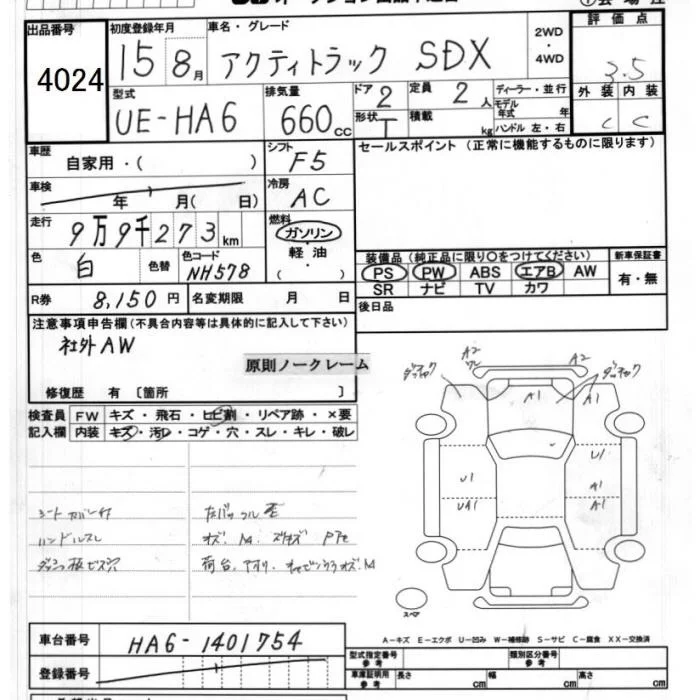 出品番号
4024
初度登録年月
15 8月
車名・グレード
アクティトラック SDX
2WD
・
4WD
評価点
3.5
外装 内装
C C
型式
UE-HA6
排気量
660 cc
ドア 2
形状 T
定員 2人
積載 kg
ディーラー・並行
モデル年式 年
ハンドル 左・右
車歴
自家用・( )
車検
年 月( 日)
シフト
F5
冷房
AC
燃料
ガソリン
軽油
・
( )
走行
9万9千273km
色
白
色替
色コード
NH578
R券 8,150円
名変期限 月 日
セールスポイント（正常に機能するものに限ります）
装備品（純正品に限り○をつけてください）
PS PW ABS エアB AW
SR ナビ TV カワ
新車保証書
有・無
後日品
注意事項申告欄(不具合内容等は具体的に記入して下さい)
社外AW
原則ノークレーム
修復歴 有〔箇所 〕
検査員
記入欄
FW キズ・飛石・ヒビ割・リペア跡・×要
内装 キズ・汚レ・コゲ・穴・スレ・キレ・破レ
シートカバー付
ハンドルスレ
ダッシュ板ビス穴
A2
A2
A1
A1
U1
UA1
U1
A1
A1
スペア
A−キズ E−エクボ U−凹み W−補修跡 S−サビ C−腐食 XX−交換済
車台番号
HA6-1401754
登録番号
型式指定番号
参考
類別区分番号
参考
車庫証明用
参考
長さ cm
幅 cm
高さ cm